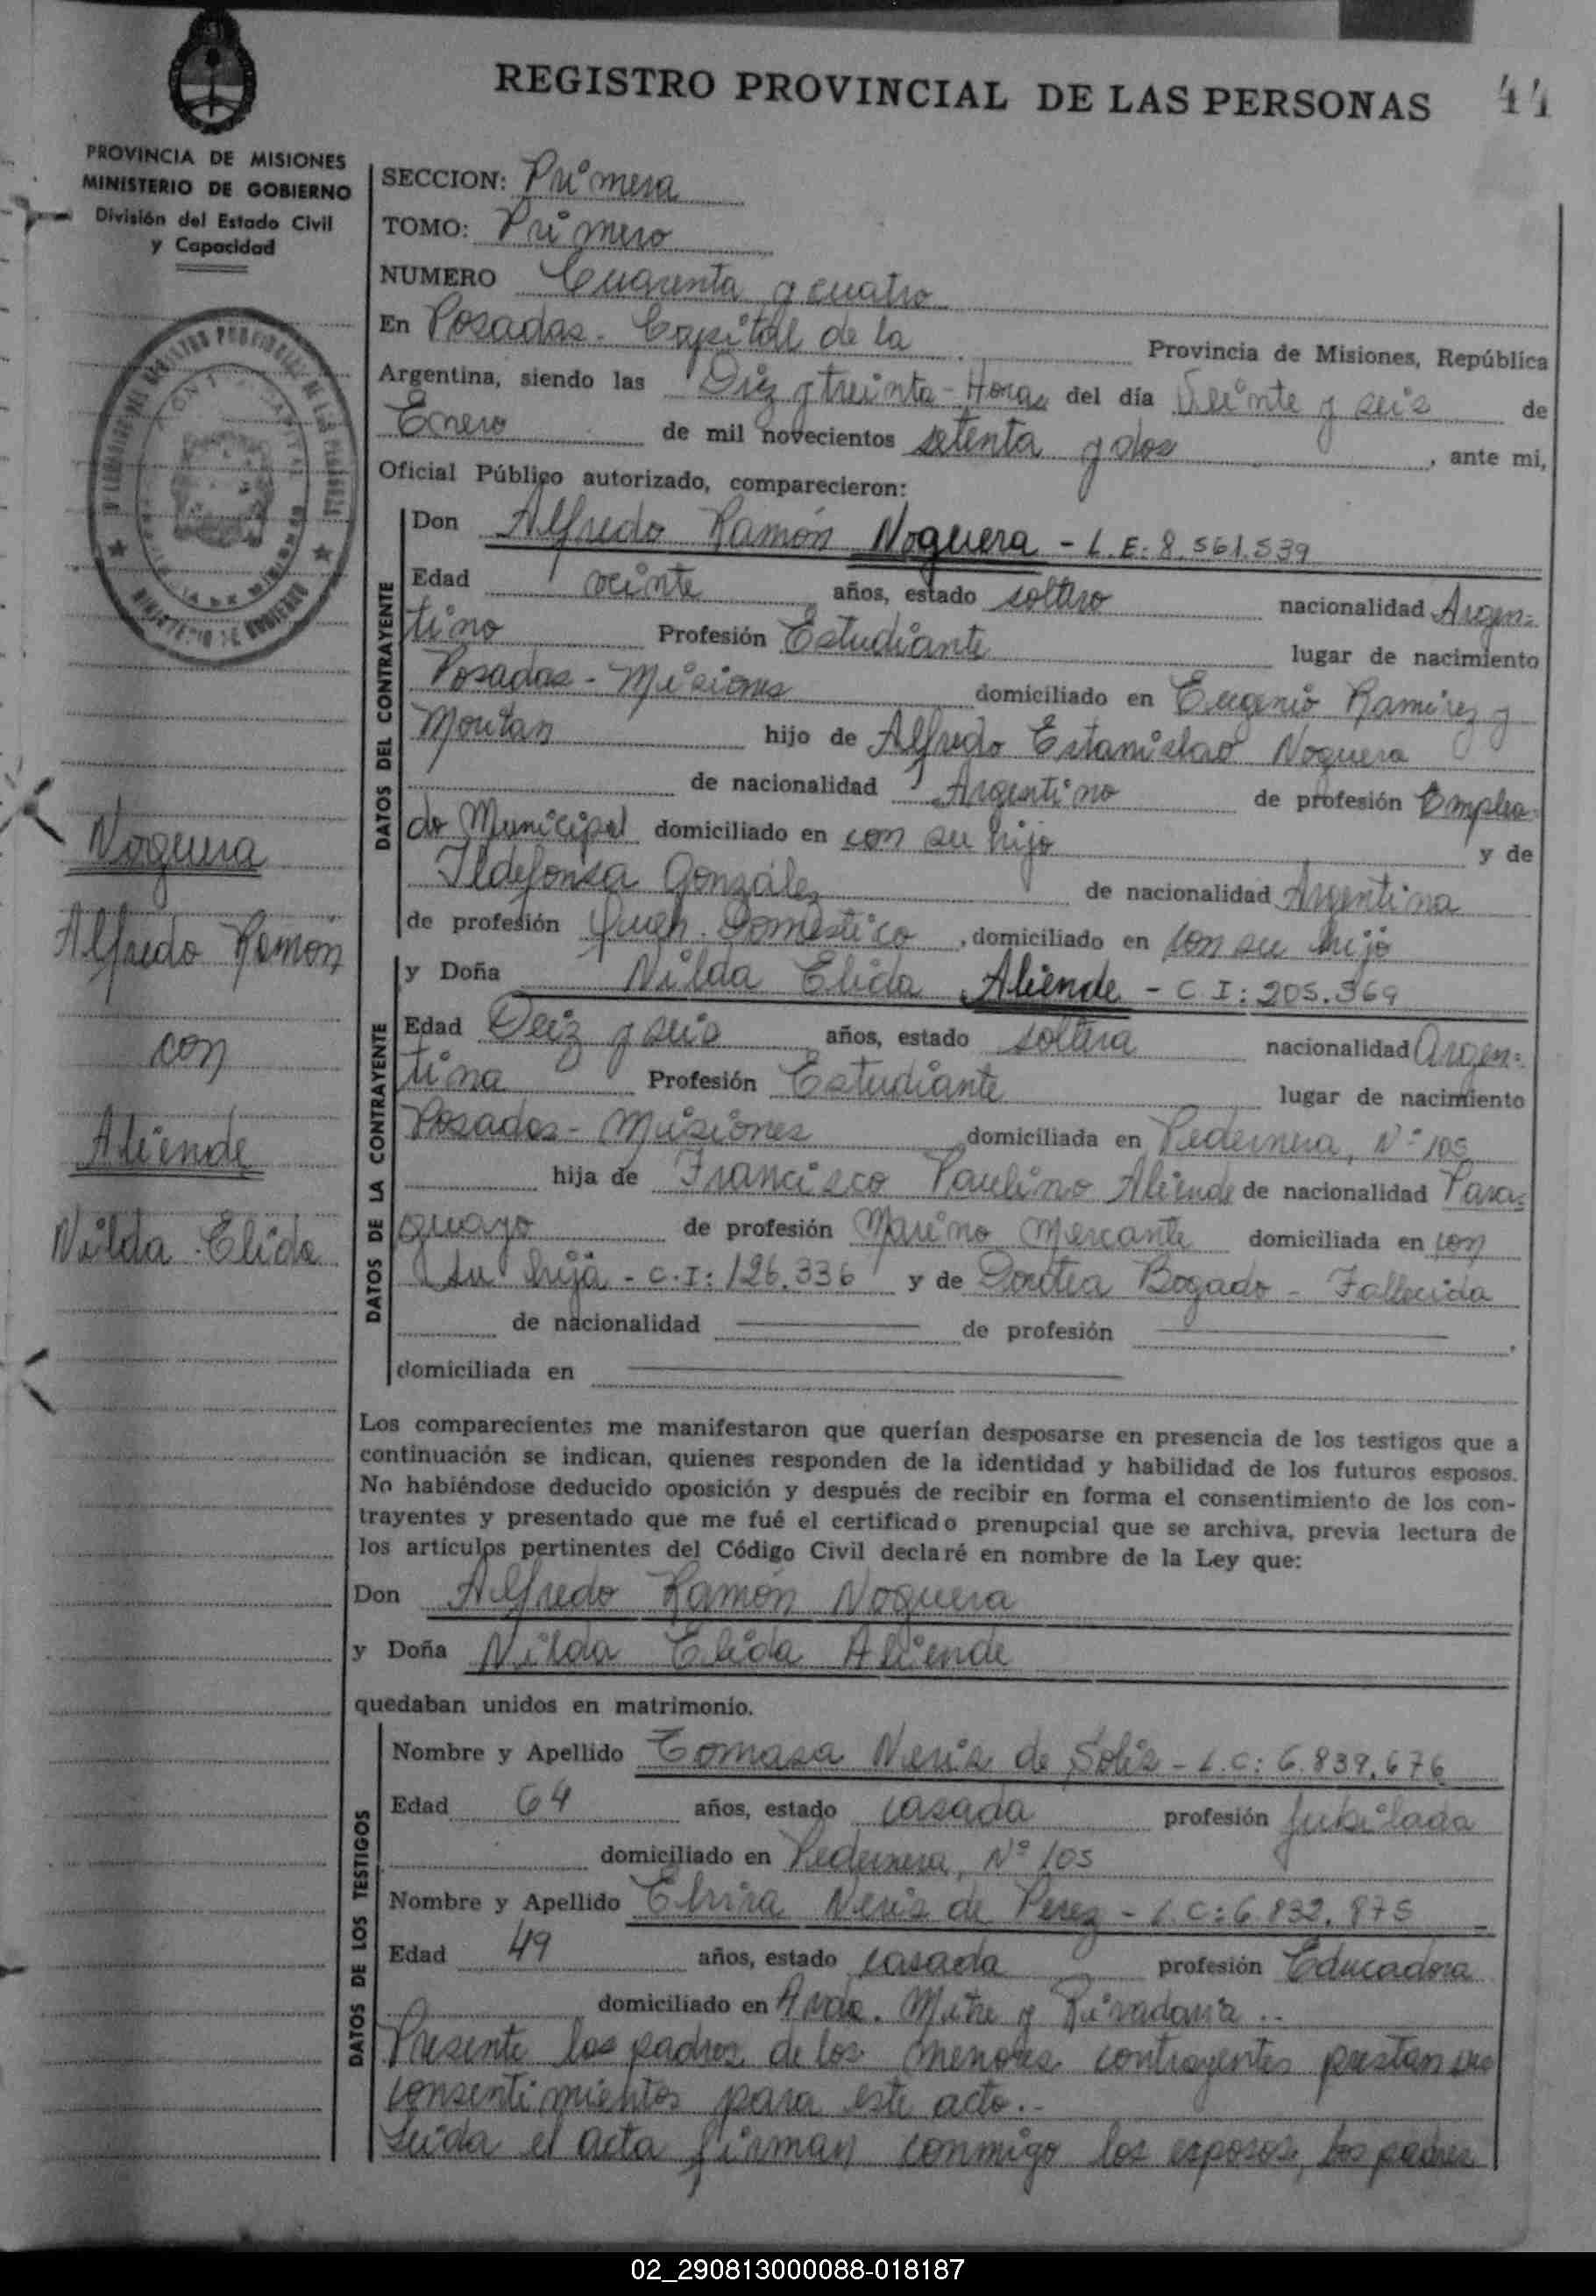 REGISTRO PROVINCIAL DE LAS PERSONAS 44
PROVINCIA DE MISIONES
MINISTERIO DE GOBIERNO
División del Estado Civil
y Capacidad
SECCION: Primera
TOMO: Primero
NUMERO Cuarenta y cuatro
En Posadas - Capital de la Provincia de Misiones, República
Argentina, siendo las Diez y treinta - Horas del día Veinte y seis de
Enero de mil novecientos setenta y dos, ante mi,
Oficial Público autorizado, comparecieron:
DATOS DEL CONTRAYENTE
Don Alfredo Ramón Noguera - L.E: 8.561.539
Edad veinte años, estado soltero nacionalidad Argen=
tino Profesión Estudiante lugar de nacimiento
Posadas - Misiones domiciliado en Eugenio Ramirez y
Moritan hijo de Alfredo Estanislao Noguera
de nacionalidad Argentino de profesión Emplea=
do Municipal domiciliado en con su hijo y de
Ildefonsa González de nacionalidad Argentina
de profesión Queh. Doméstico, domiciliado en con su hijo
DATOS DE LA CONTRAYENTE
y Doña Nilda Elida Aliende - C.I: 205.369
Edad Deiz y seis años, estado soltera nacionalidad Argen=
tina Profesión Estudiante lugar de nacimiento
Posadas - Misiones domiciliada en Pedernera, Nº 105
hija de Francisco Paulino Aliende de nacionalidad Para=
guayo de profesión Marino Mercante domiciliada en con
su hija - C.I: 126.336 y de Dorotea Bogado - Fallecida
de nacionalidad de profesión
domiciliada en
Noguera
Alfredo Ramón
con
Aliende
Nilda Elida
Los comparecientes me manifestaron que querían desposarse en presencia de los testigos que a
continuación se indican, quienes responden de la identidad y habilidad de los futuros esposos.
No habiéndose deducido oposición y después de recibir en forma el consentimiento de los con-
trayentes y presentado que me fué el certificado prenupcial que se archiva, previa lectura de
los artículos pertinentes del Código Civil declaré en nombre de la Ley que:
Don Alfredo Ramón Noguera
y Doña Nilda Elida Aliende
quedaban unidos en matrimonio.
DATOS DE LOS TESTIGOS
Nombre y Apellido Tomasa Neris de Solis - L.C: 6.839.676
Edad 64 años, estado casada profesión Jubilada
domiciliado en Pedernera, Nº 105
Nombre y Apellido Elvira Neris de Perez - L.C: 6.832.875
Edad 49 años, estado casada profesión Educadora
domiciliado en Avda. Mitre y Rivadavia..
Presente los padres de los menores contrayentes prestan su
consentimientos para este acto..
Leida el acta firman conmigo los esposos, los padres
02_290813000088-018187